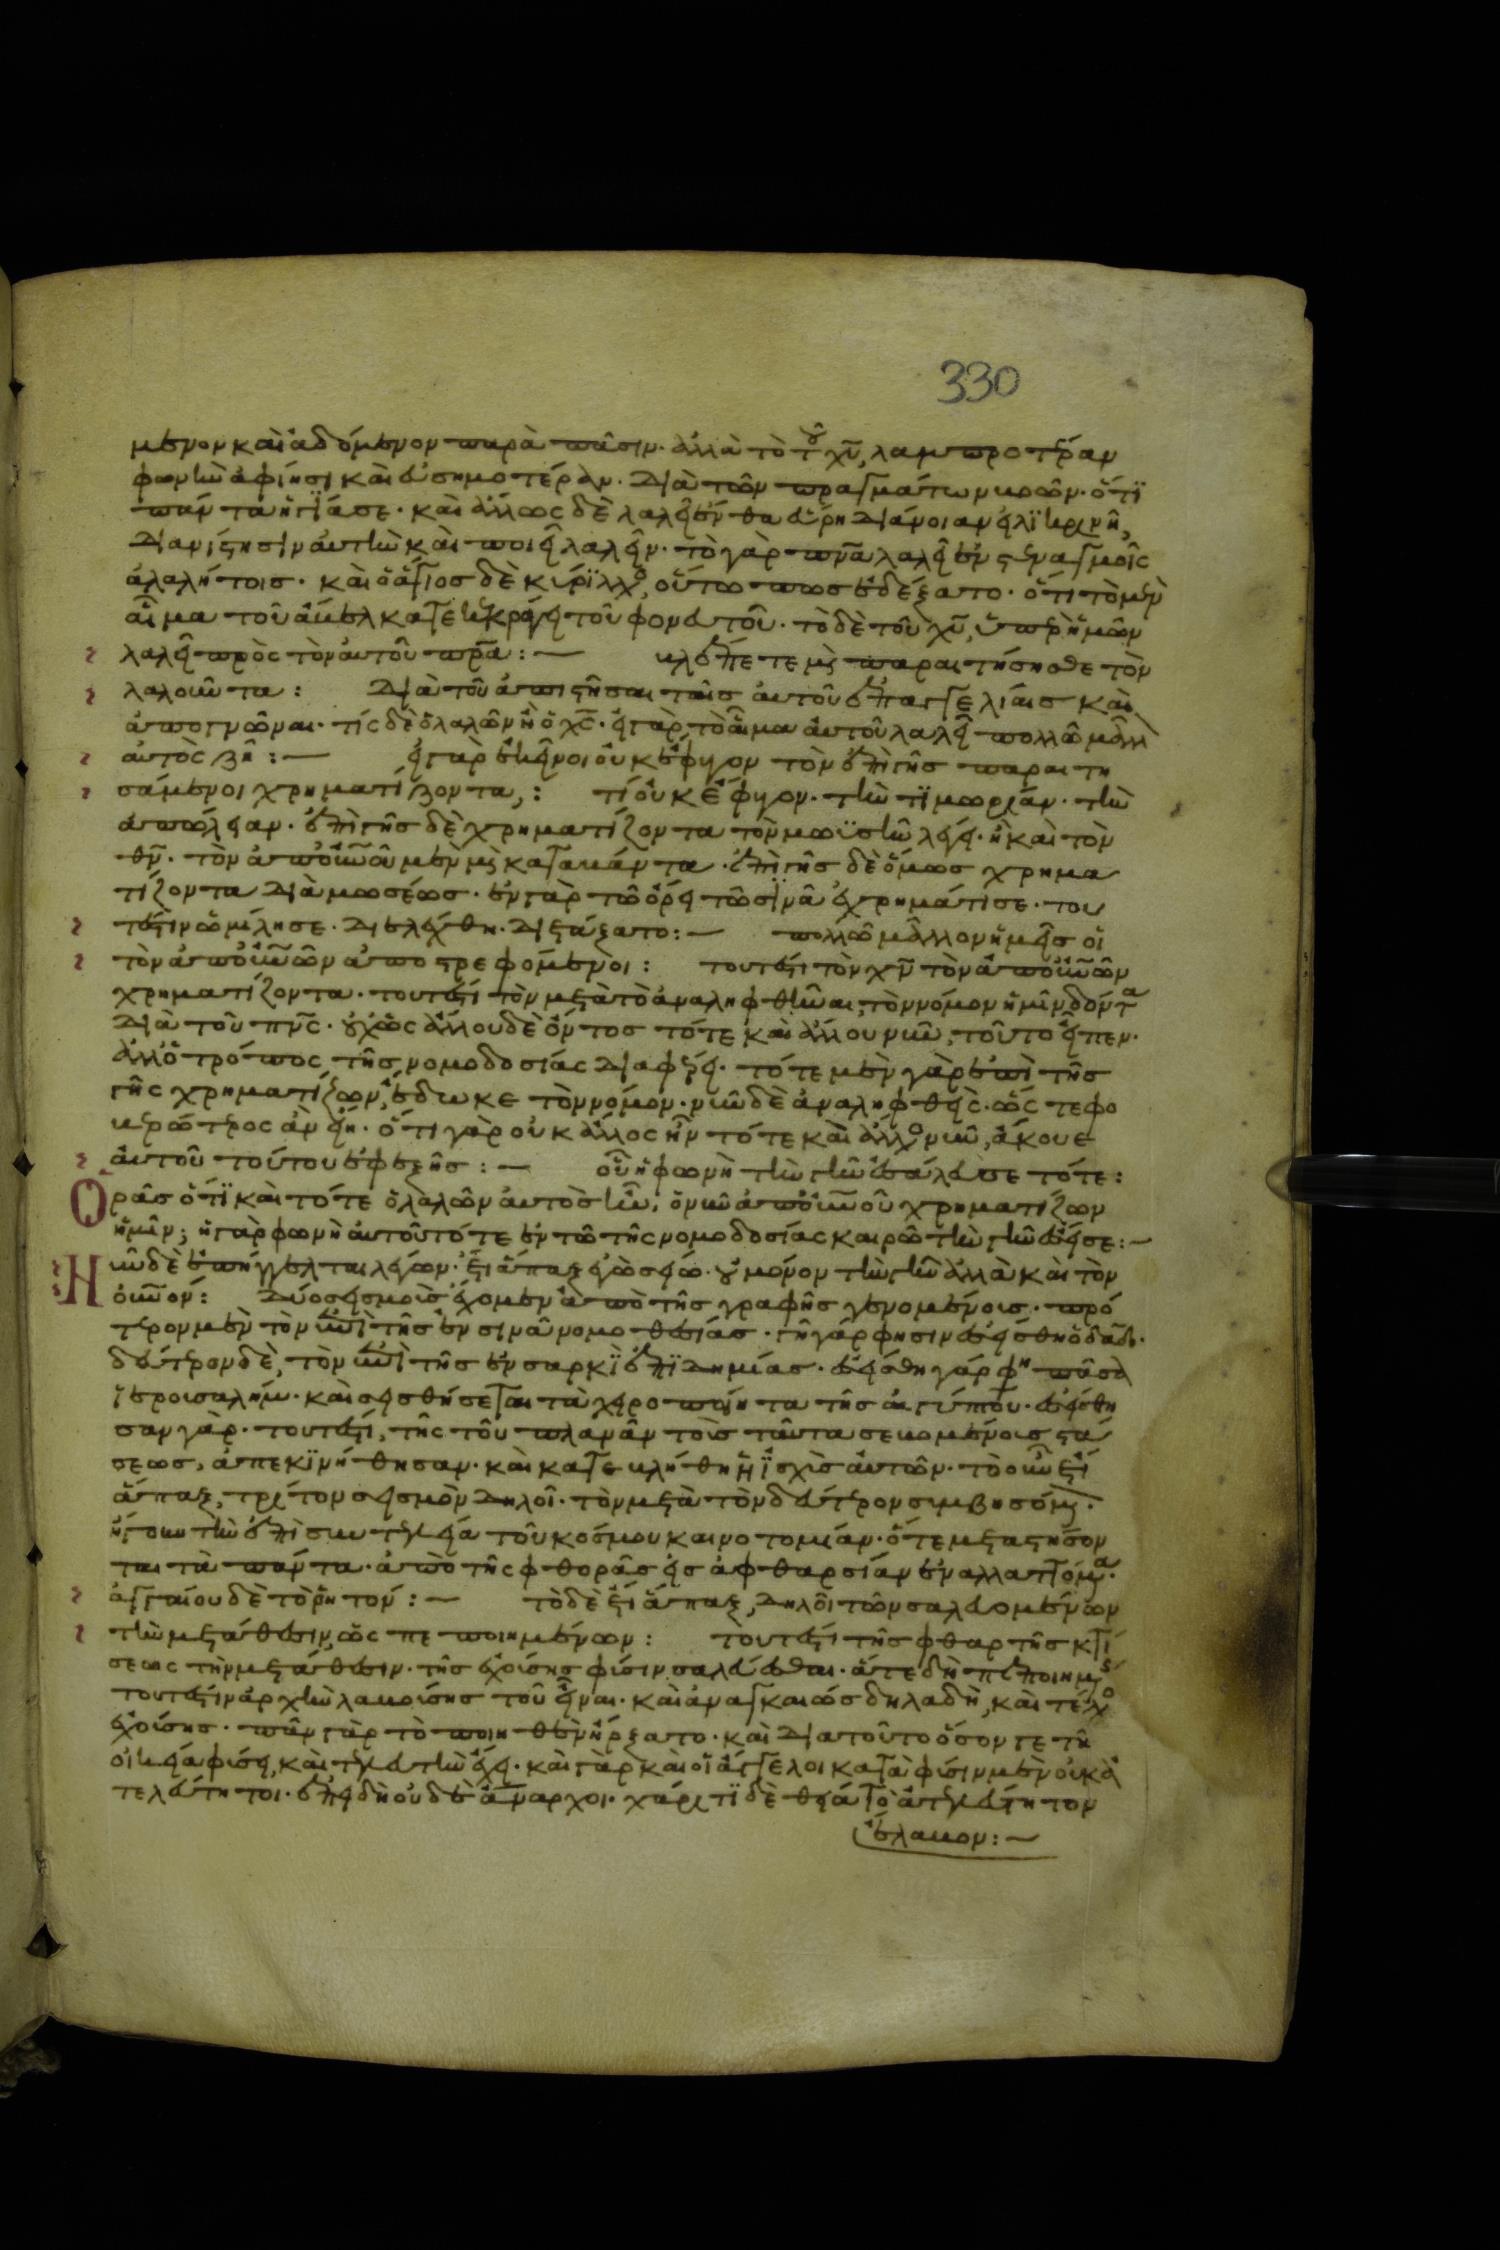 330
μενον καὶ ἀδόμενον παρὰ πᾶσιν. ἀλλὰ τὸ τοῦ χυ, λαμπροτέραν
φωνὴν ἀφίησι καὶ εὐσημοτέραν. διὰ τῶν πραγμάτων βοῶν. ὅτι
πάντα ἡγίασε. καὶ ἄλλως δὲ λαλεῖ ἔνθα εὕρῃ διάνοιαν εἰλικρινῆ,
διανίστησιν αὐτὴν καὶ ποιεῖ λαλεῖν. τὸ γὰρ πνα λαλεῖ ἐν στεναγμοῖς
ἀλαλήτοις. καὶ ὁ ἅγιος δὲ κύριλλος, οὕτω πως ἐδέξατο. ὅτι τὸ μὲν
αἷμα τοῦ ἄβελ κατεκεκράγει τοῦ φονευτοῦ. τὸ δὲ τοῦ χυ, ὑπὲρ ἡμῶν
λαλεῖ πρὸς τὸν αὐτοῦ πρα: βλέπετε μὴ παραιτήσησθε τὸν
λαλοῦντα: διὰ τοῦ ἀπιστῆσαι ταῖς αὐτοῦ ἐπαγγελίαις καὶ
ἀπογνῶναι. τίς δὲ ὁ λαλῶν ἢ ὁ χς. εἰ γὰρ τὸ αἷμα αὐτοῦ λαλεῖ πολλῶ μᾶλλ
αὐτὸς ζῆ: εἰ γὰρ ἐκεῖνοι οὐκ ἔφυγον τὸν ἐπὶ γῆς παραιτη
σάμενοι χρηματίζοντα,: τί οὐκ ἔφυγον. τὴν τιμωρίαν. τὴν
ἀπώλειαν. ἐπὶ γῆς δὲ χρηματίζοντα τὸν μωϋσῆν λέγει. ἢ καὶ τὸν
θν. τὸν ἀπ' οὐνοῦ μὲν μὴ καταβάντα. ἐπὶ γῆς δὲ ὅμως χρημα
τίζοντα διὰ μωσέως. ἐν γὰρ τῶ ὄρει τῶ σινᾶ ἐχρημάτισε. του
τέστιν ὡμίλησε. διελέχθη. διετάξατο: πολλῶ μᾶλλον ἡμεῖς οἱ
τὸν ἀπ' οὐνῶν ἀποστρεφόμενοι: τουτέστι τὸν χν τὸν ἀπ' οὐνῶν
χρηματίζοντα. τουτέστι τὸν μετὰ τὸ ἀναληφθῆναι, τὸν νόμον ἡμῖν δόντα
διὰ τοῦ πνς. οὐχ ὡς ἄλλου δὲ ὄντος τότε καὶ ἄλλου νῦν, τοῦτο εἶπεν.
ἀλλ' ὁ τρόπος τῆς νομοδοσίας διαφέρει. τότε μὲν γὰρ ἐπὶ τῆς
γῆς χρηματίζων, ἔδωκε τὸν νόμον. νῦν δὲ ἀναληφθεὶς. ὥς τε φο
βερώτερος ἂν εἴη. ὅτι γὰρ οὐκ ἄλλος ἦν τότε καὶ ἄλλος νῦν, ἄκουε
αὐτοῦ τούτου ἐφεξῆς: οὗ ἡ φωνὴ τὴν γῆν ἐσάλευσε τότε:
Ορᾶς ὅτι καὶ τότε ὁ λαλῶν αὐτὸς ἦν, ὁ νῦν ἀπ' οὐνοῦ χρηματίζων
ἡμῖν; ἡ γὰρ φωνὴ αὐτοῦ τότε ἐν τῶ τῆς νομοδοσίας καιρῶ τὴν γῆν ἔσεισε:
Νῦν δὲ ἐπήγγελται λέγων. ἔτι ἅπαξ ἐγὼ σείω. οὐ μόνον τὴν γῆν ἀλλὰ καὶ τὸν
οὐνόν: δύο σεισμοὺς ἔχομεν ἀπὸ τῆς γραφῆς γενομένους. πρό
τερον μὲν τὸν ἐπὶ τῆς ἐν σινᾶ νομοθεσίας. γῆ γάρ φησιν ἐσείσθη ὁ δαδ.
δεύτερον δὲ, τὸν ἐπὶ τῆς ἐν σαρκὶ ἐπιδημίας. ἐσείσθη γάρ φη πᾶσα
ἱερουσαλήμ. καὶ σεισθήσεται τὰ χειροποίητα τῆς αἰγύπτου. ἐσείσθη
σαν γάρ. τουτέστι, τῆς τοῦ πλανᾶν τοὺς ταῦτα σεβομένους στά
σεως, ἀπεκινήθησαν. καὶ κατεκλήθη ἡ ἰσχὺς αὐτῶν. τὸ οὖν ἔτι
ἅπαξ, τρίτον σεισμὸν δηλοῖ. τὸν μετὰ τὸν δεύτερον συμβησόμενον.
ἤγουν τὴν ἐπὶ συντελεία τοῦ κόσμου καινοτομίαν. ὅτε μεταστήσον
ται τὰ πάντα. ἀπὸ τῆς φθορᾶς εἰς ἀφθαρσίαν ἐναλλαττόμενα.
ἀγγαίου δὲ τὸ ῥητόν: τὸ δὲ ἔτι ἅπαξ, δηλοῖ τῶν σαλευομένων
τὴν μετάθεσιν, ὡς πεποιημένων: τουτέστι τῆς φθαρτῆς κτί
σεως τὴν μετάθεσιν. τῆς ἐχούσης φύσιν σαλεύεσθαι. ἅτε δὴ πεποιημένης
τουτέστιν ἀρχὴν λαβούσης τοῦ εἶναι. καὶ ἀναγκαίως δηλαδὴ, καὶ τέλος
ἐχούσης. πᾶν γὰρ τὸ ποιηθὲν ἤρξατο. καὶ διατοῦτο ὅσον γε τῆ
οἰκεία φύσει, καὶ τελευτὴν ἕξει. καὶ γὰρ καὶ οἱ ἄγγελοι κατὰ φύσιν μὲν οὐκ ἀ
τελεύτητοι. ἐπειδὴ οὐδὲ ἄναρχοι. χάριτι δὲ θεία τὸ ἀτελεύτητον
ἔλαβον: